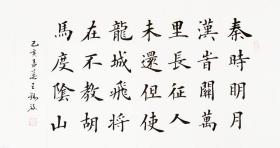 秦時明月
漢旹關萬
里長征人
未還但使
龍城飛将
在不教胡
馬度陰山
己亥